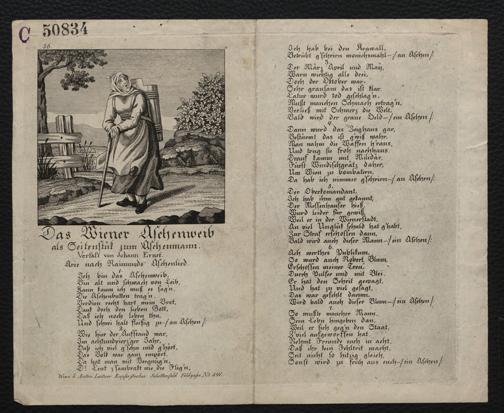 C 50834
36.
Das Wiener Aschenweib
als Seitenstük zum Aschenmann.
Verfaßt von Johann Ernst.
Arie nach Raimunds Aschenlied.
Ich bin das Aschenweib,
Bin alt und schwach von Leib,
Kann kaum ich muß es sag'n,
Die Aschenbutten trag'n
Verdien recht hart mein Brot,
Und doch den lieben Gott,
Daß ich noch leben thu,
Und schrei halt fleißig zu (an Aschen)
Wie hier der Aufstand war,
Im achtundvierz'ger Jahr,
Daß ich viel g'sehn und g'hört,
Das Volk war ganz empört,
Da hat man mit Vergnüg'n,
D' Leut z'sambrakt wie die Flieg'n,
Ich hab bei den Krawall,
Der März April und May,
Warn wichtig alle drei,
Doch der Oktober war
Sehr grausam das ist klar,
Latur wurd tod geschlag'n,
Mußt manchen Schmach ertrag'n,
Verließ mit Schmerz die Welt,
Bald wird der graue Held (ein Aschen)
Dann wurd das Zeughaus gar,
Gestürmt das ist g'wiß wahr,
Man nahm die Waffen h'raus,
Und trug sie froh nachhaus,
Drauf kamm mit Militär,
Fürst Windischgrätz daher,
Um Wien zu bombadirn,
Da hab ich nimmer g'schrien (an Aschen)
5.
Der Oberkomandant,
Ich hab ihn gut gekannt,
Der Messenhauser hieß,
Wurd leider für gewiß,
Weil er in der Wienerstadt,
An viel Unglük schuld hat g'habt,
Zur Straf erschossen dann,
Bald wird auch dieser Mann (ein Aschen)
Ach werthes Publikum,
So ward auch Robert Blum,
Geschossen meiner Treu,
Durch Pulver und mit Blei,
Er hat den Schreil gewagt,
Und hat zu viel gesagt,
Das war gefehlt darum,
Wird bald auch dieser Blum (ein Aschen)
So mußte mancher Mann,
Sein Lebn hingeben dan,
Weil er sich geg'n den Staat,
Z'viel aufgeworffen hat
Nehmt Freunde euch in acht,
Daß ihr kein Fehltrit macht,
Seit nicht so hitzig gleich,
Sonst wird zu früh aus euch (ein Aschen)